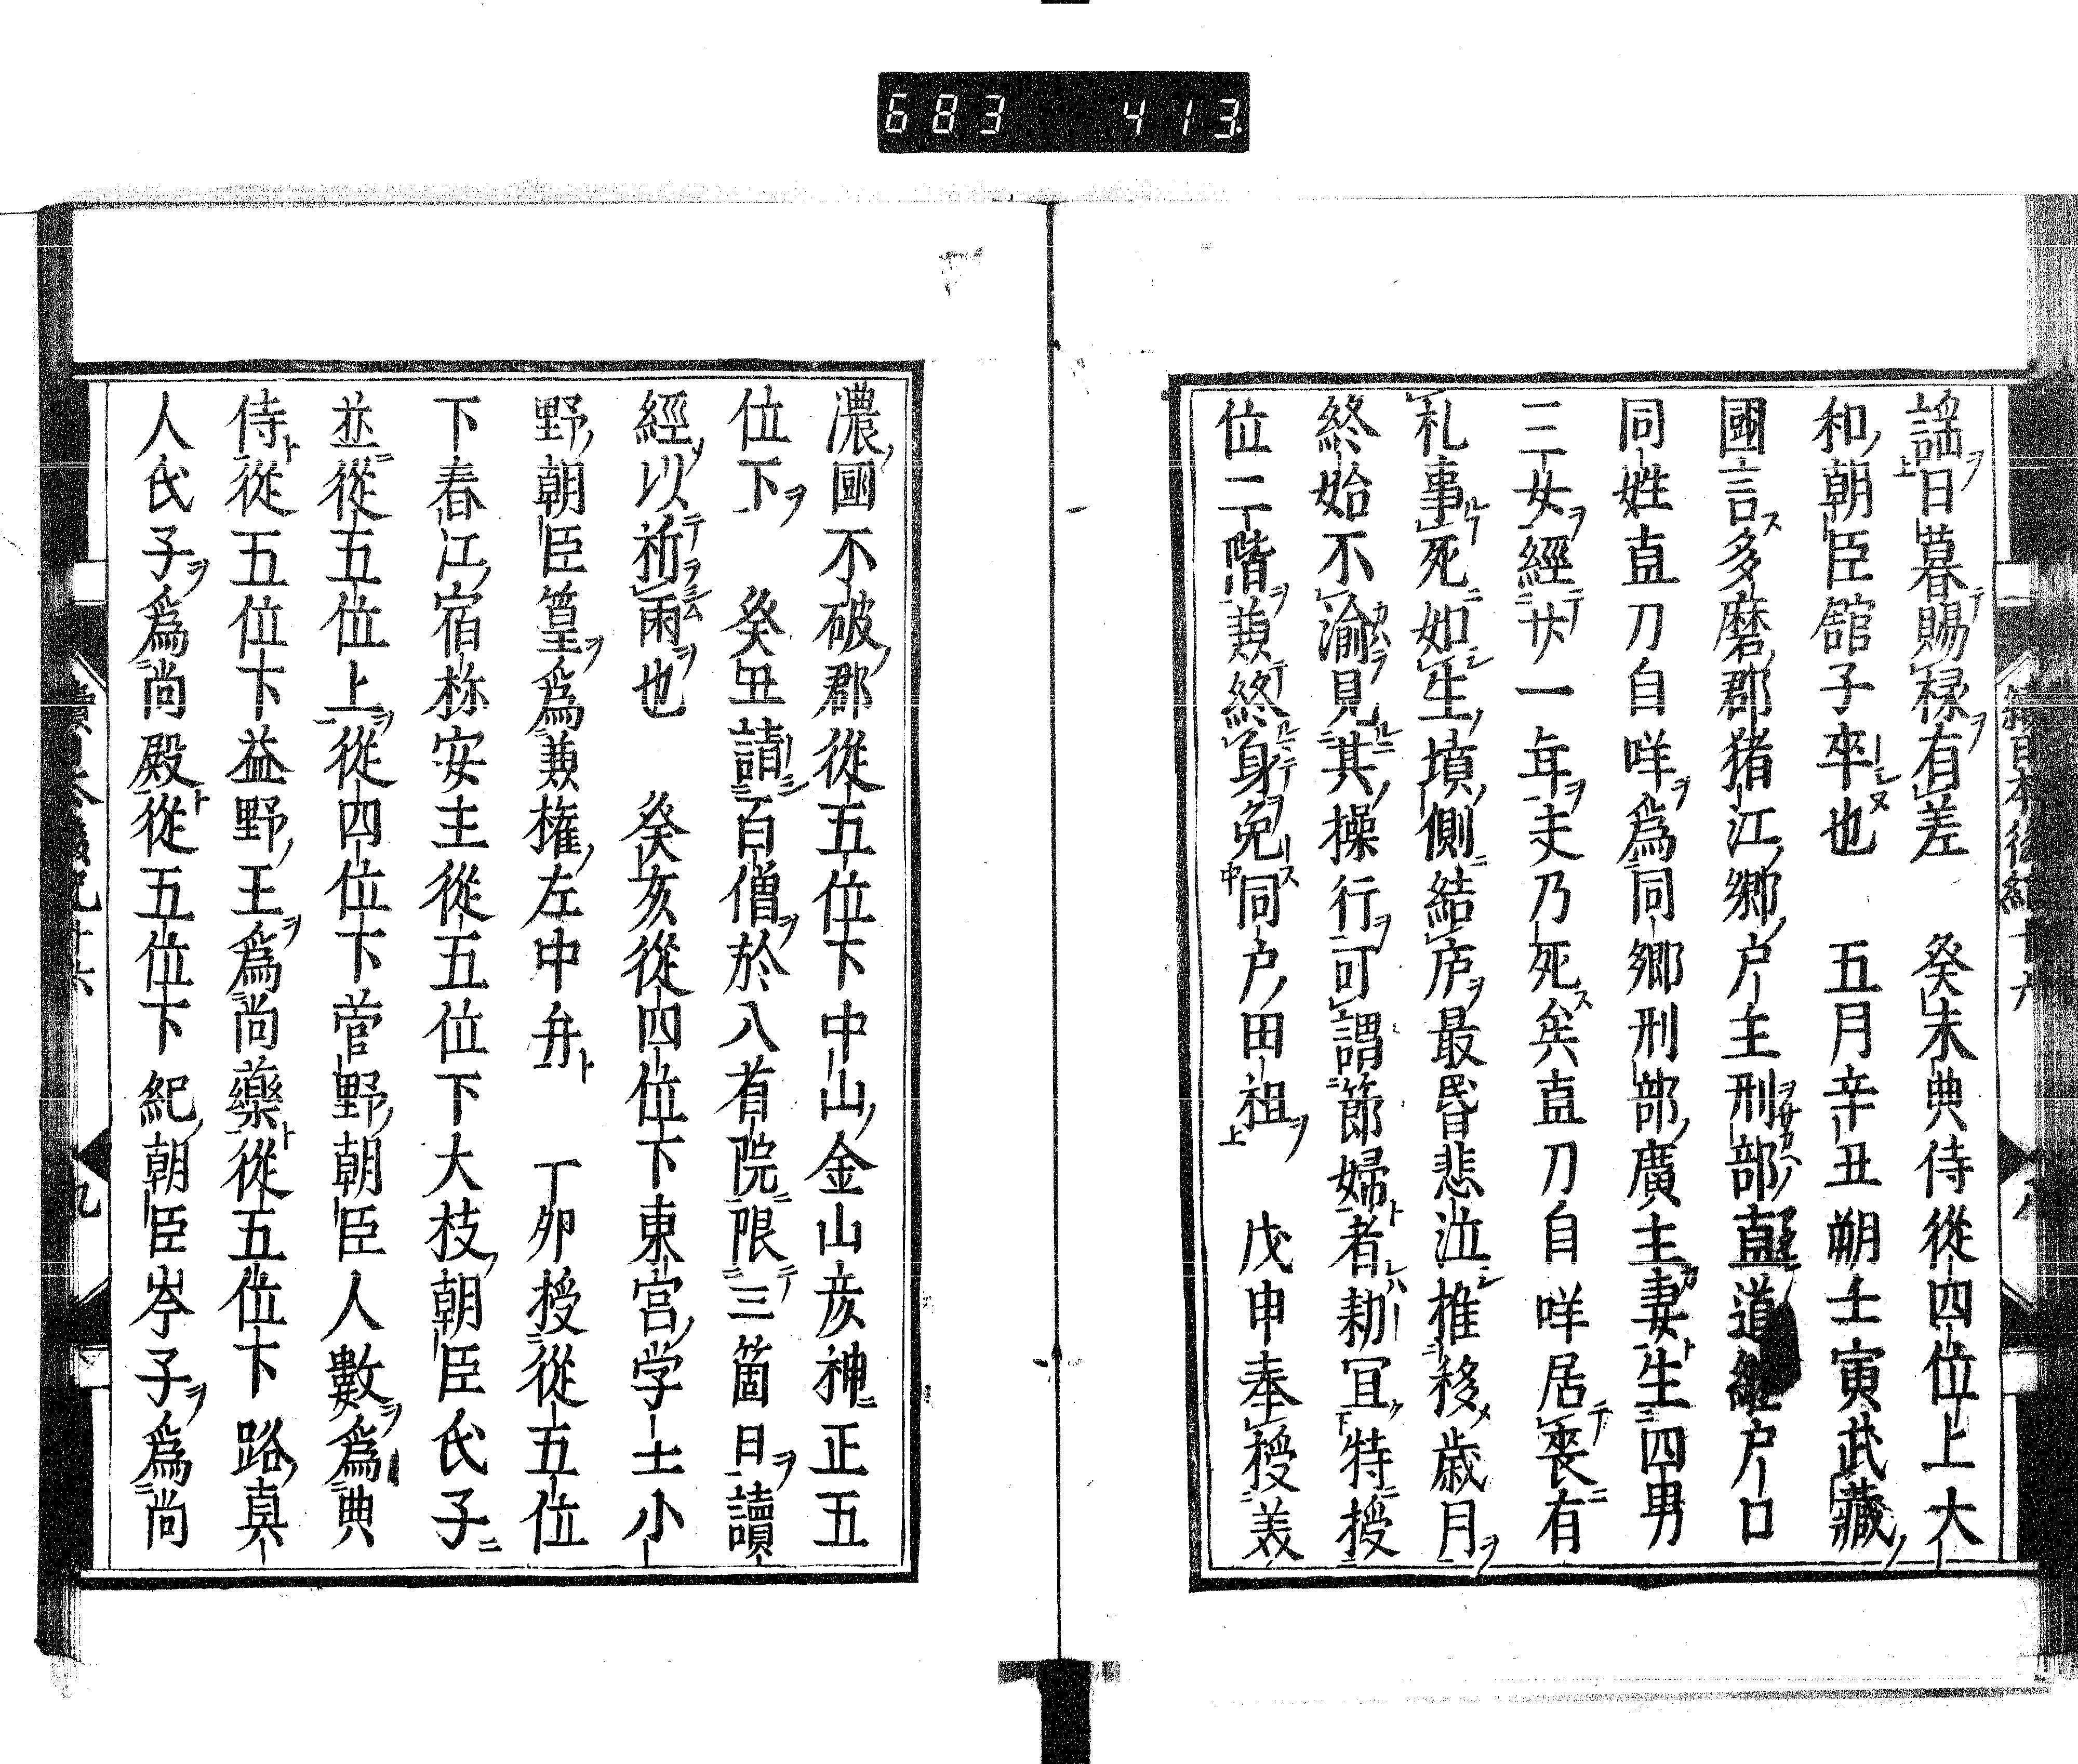 683 413
謡日暮賜禄有差 癸未典侍從四位上大
和朝臣舘子卒也 五月辛丑朔壬寅武藏
國言多磨郡猪江郷戸主刑部直道継戸口
同姓直刀自咩爲同郷刑部廣主妻生四男
三女經廿一年夫乃死矣直刀自咩居喪有
礼事死如生墳側結庐最昏悲泣推移歳月
終始不渝見其操行可謂節婦者勅冝特授
位二階兼終身免同戸田祖 戊申奉授美
濃國不破郡從五位下中山金山彦神正五
位下 癸丑請百僧於八省院限三箇日讀
經以祈雨也 癸亥從四位下東宮学士小
野朝臣篁爲兼權左中弁 丁卯授從五位
下春江宿祢安主從五位下大枝朝臣氏子
並從五位上從四位下菅野朝臣人數爲典
侍從五位下益野王爲尚藥從五位下路真
人氏子爲尚殿從五位下紀朝臣岑子爲尚